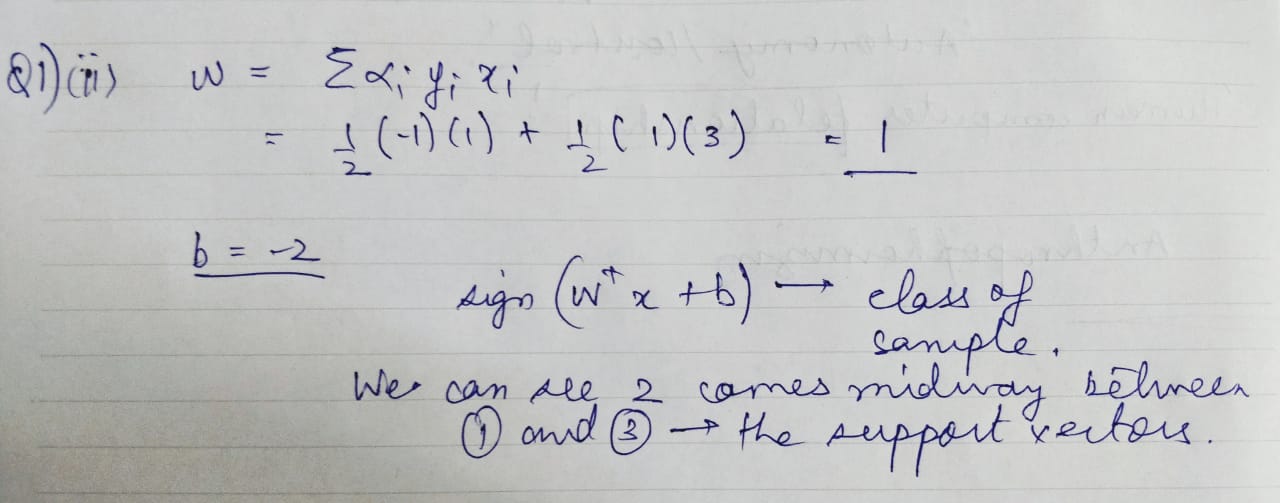 Q1)(ii) w = Σ αᵢ yᵢ xᵢ
= 1/2 (-1)(1) + 1/2 (1)(3) = 1
b = -2
sign (wᵀx + b) → class of
sample.
We can see 2 comes midway between
① and ③ → the support vectors.